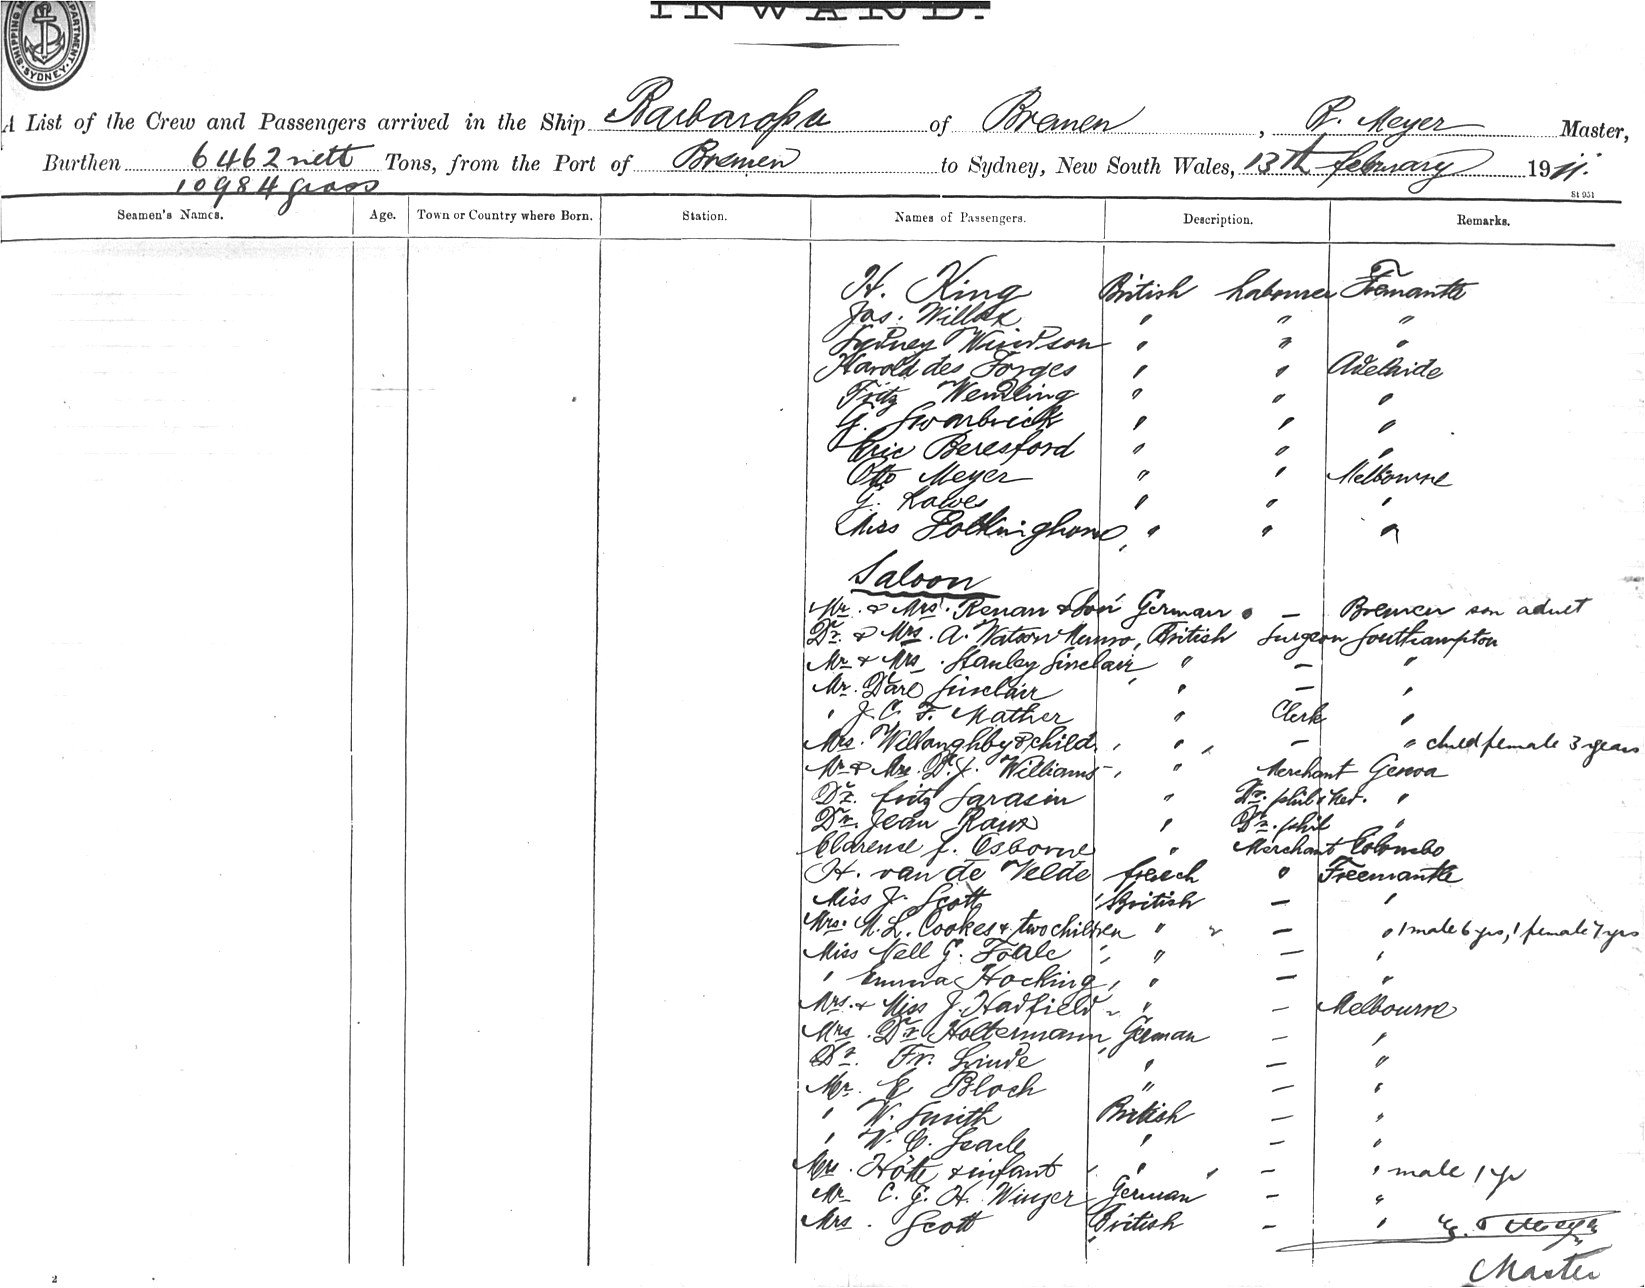 SHIPPING DEPARTMENT. SYDNEY.
INWARD.
A List of the Crew and Passengers arrived in the Ship Barbarossa of Bremen, R. Meyer Master,
Burthen 6462 nett Tons, from the Port of Bremen to Sydney, New South Wales, 13th february 1911.
10984 gross
St 951
Seamen's Names. Age. Town or Country where Born. Station. Names of Passengers. Description. Remarks.
H. King British Labourer Fremantle
Jas. Willox " " "
Sydney Windson " " "
Harold des Forges " " Adelaide
Fritz Wendling " " "
G. Swarbrick " " "
Eric Beresford " " "
Otto Meyer " " Melbourne
G. " " "
Miss " " "
Saloon
Mr. & Mrs. Renan & Son German " — Bremen son adult
Dr. & Mrs. A. Watson Munro, British Surgeon Southampton
Mr & Mrs. Stanley Sinclair " — "
Mr. Sinclair " — "
" J. C. F. Mather " Clerk "
Mrs. Willoughby & child, " — " child female 3 years
Mr & Mrs. D. J. Williams, " Merchant Genoa
Dr. fritz Sarasin " Dr. phil & "
Dr. Jean Roux " Dr. phil "
Clarence f. Osborne " Merchant Colombo
H. van de Velde french " Freemantle
Miss J. Scott British — "
Mrs. M. L. Cookes & two children " — " 1 male 6 yrs, 1 female 7 yrs
Miss Nell G. " — "
" Emma Hocking, " — "
Mrs. & Miss J. Hadfield " — Melbourne
Mrs. Dr. Holtermann, German — "
Dr. Fr. Linde " — "
Mr. E Bloch " — "
" W. Smith British — "
" W. C. Searle " — "
Mrs. & infant " — " male 1 yr
Mr C. G. H. Winzer German — "
Mrs. Scott British — "
Master
2